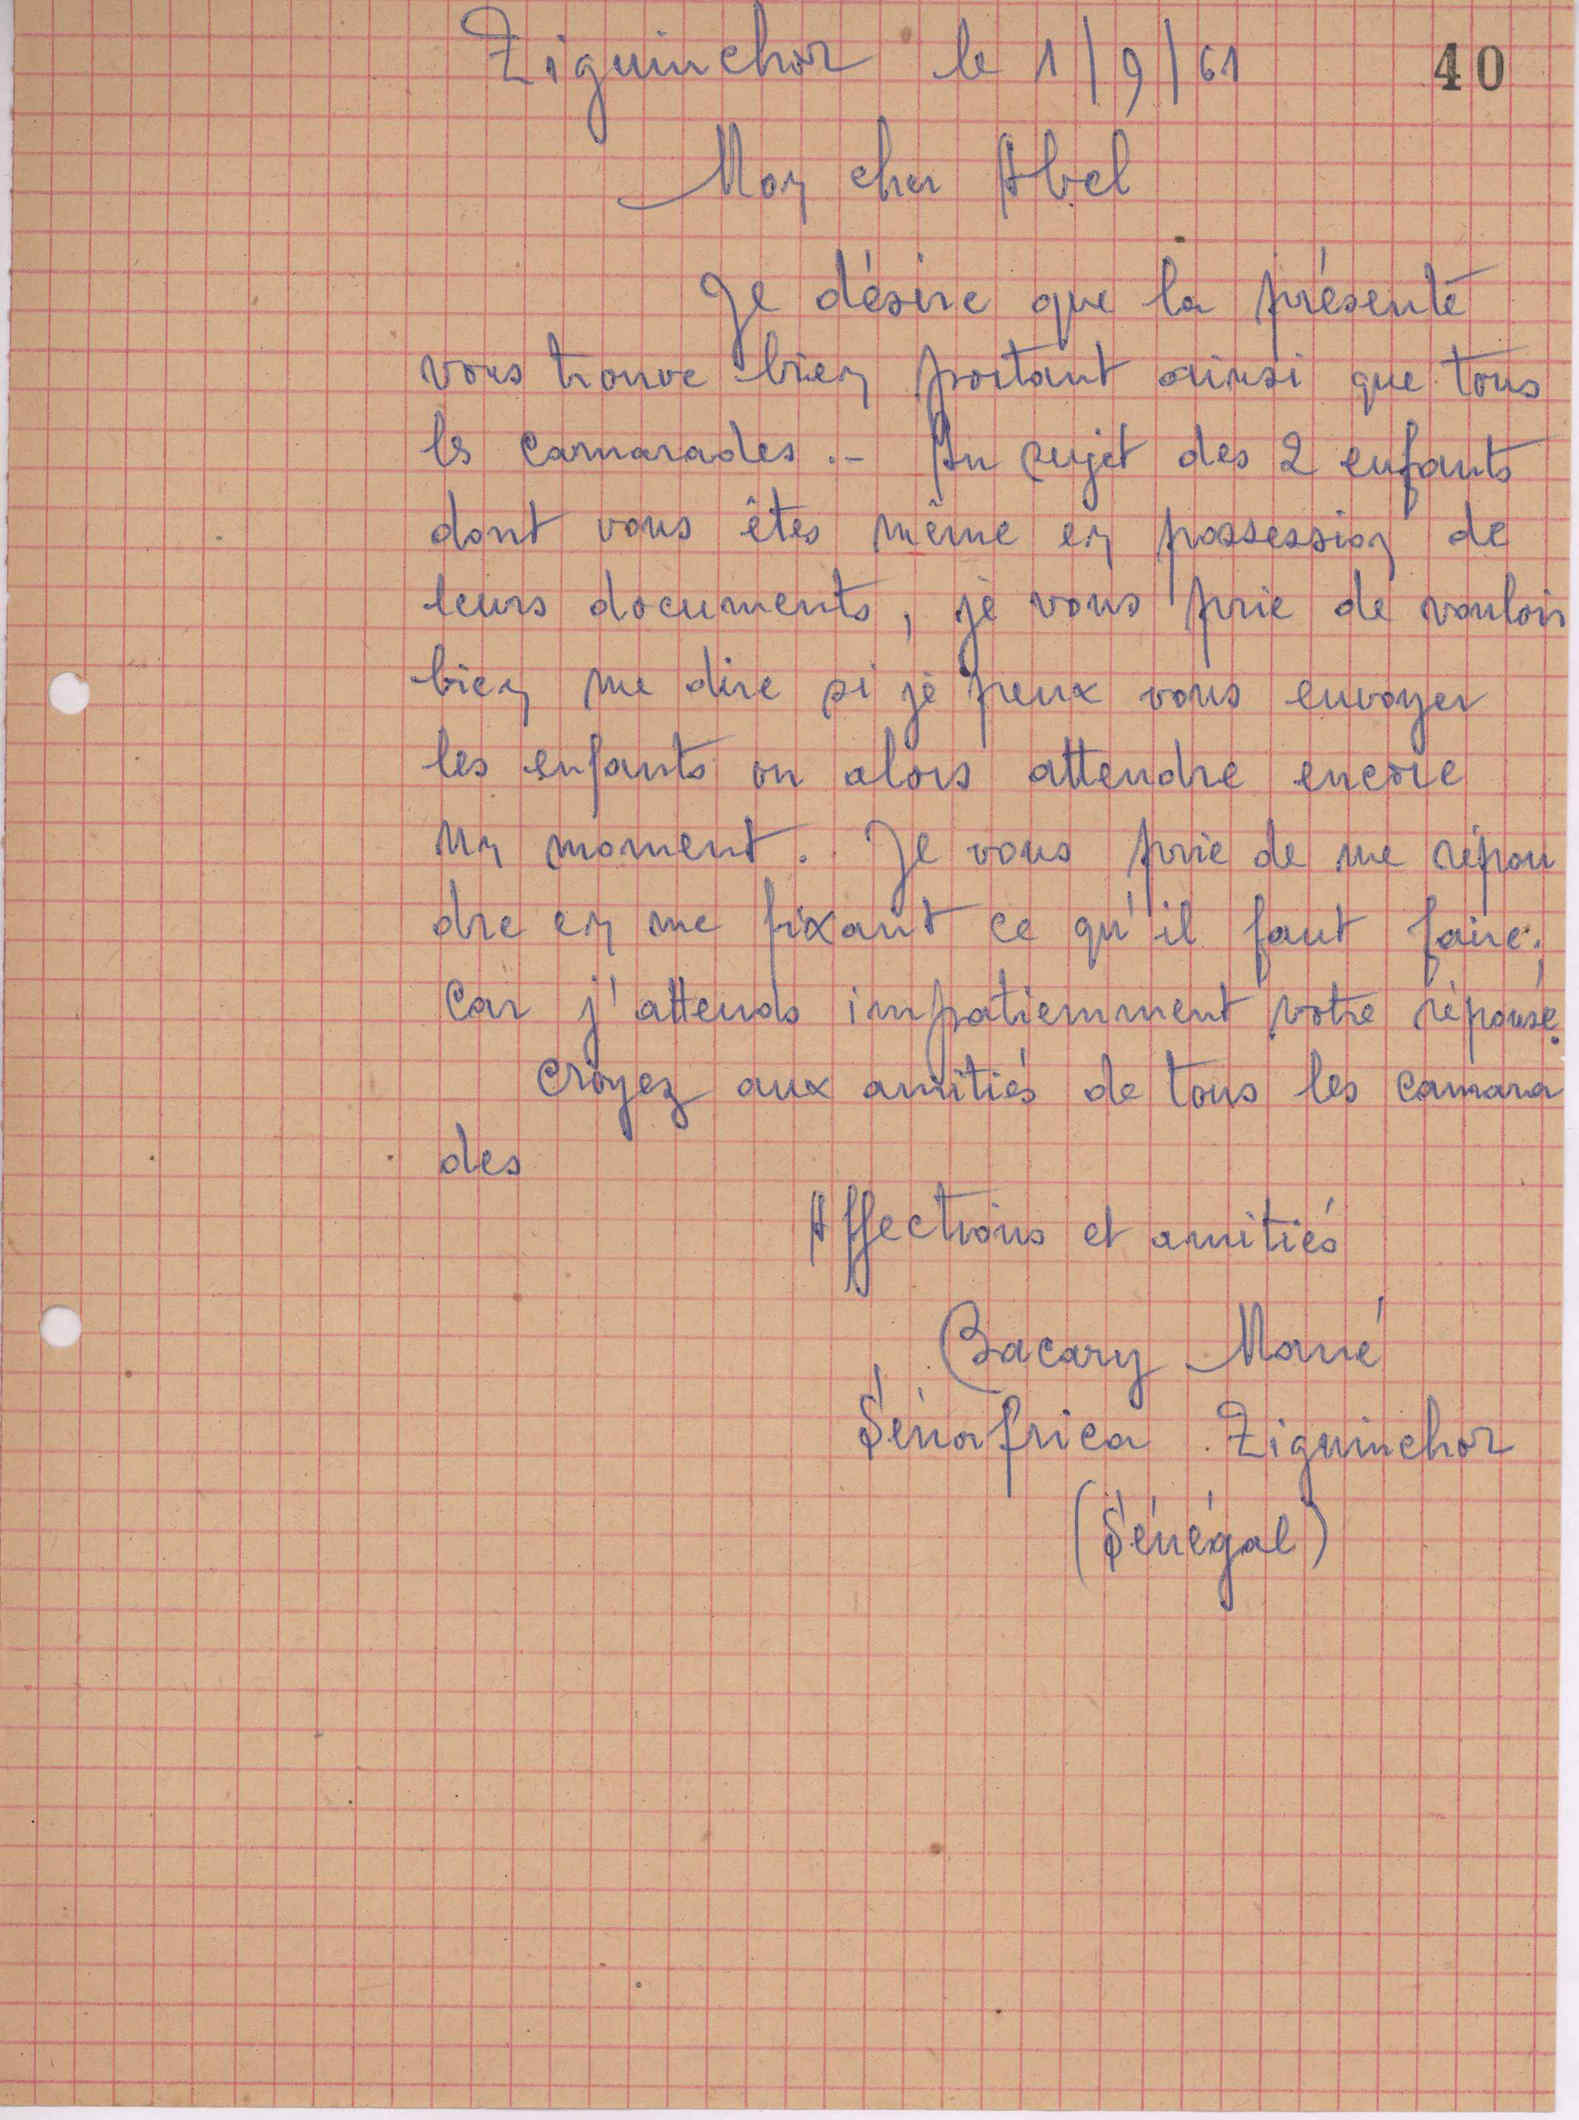 Ziguinchor le 1/9/61 40
Mon cher Abel
Je désire que la présente
vous trouve bien portant ainsi que tous
ls camarades .- Au sujet des 2 enfants
dont vous êtes même en possession de
leurs documents, je vous prie de vouloir
bien me dire si je peux vous envoyer
les enfants ou alors attendre encore
un moment. Je vous prie de me répon
dre en me fixant ce qu'il faut faire,
car j'attends impatiemment votre réponse.
Croyez aux amitiés de tous les camara
des
Affections et amitiés
Bacary Mané
Sénafrica Ziguinchor
(Sénégal)